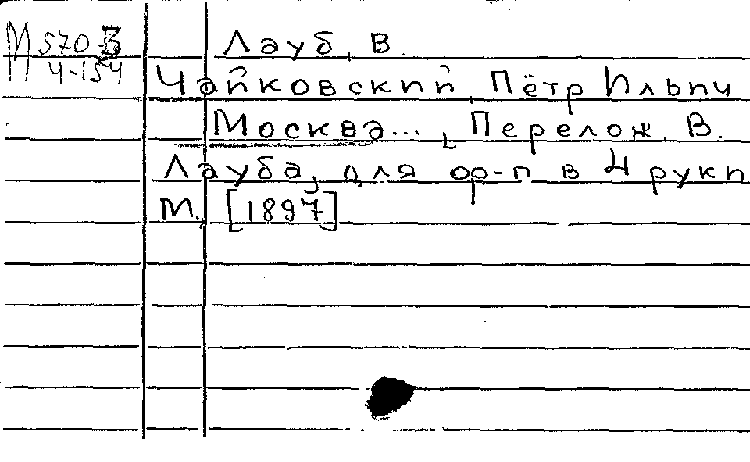 М 570-3
Ч-154
Лауб, В.
Чайковский, Пётр Ильич
Москва..., Перелож. В.
Лауба, для ф-п в 4 руки
М. [1897]